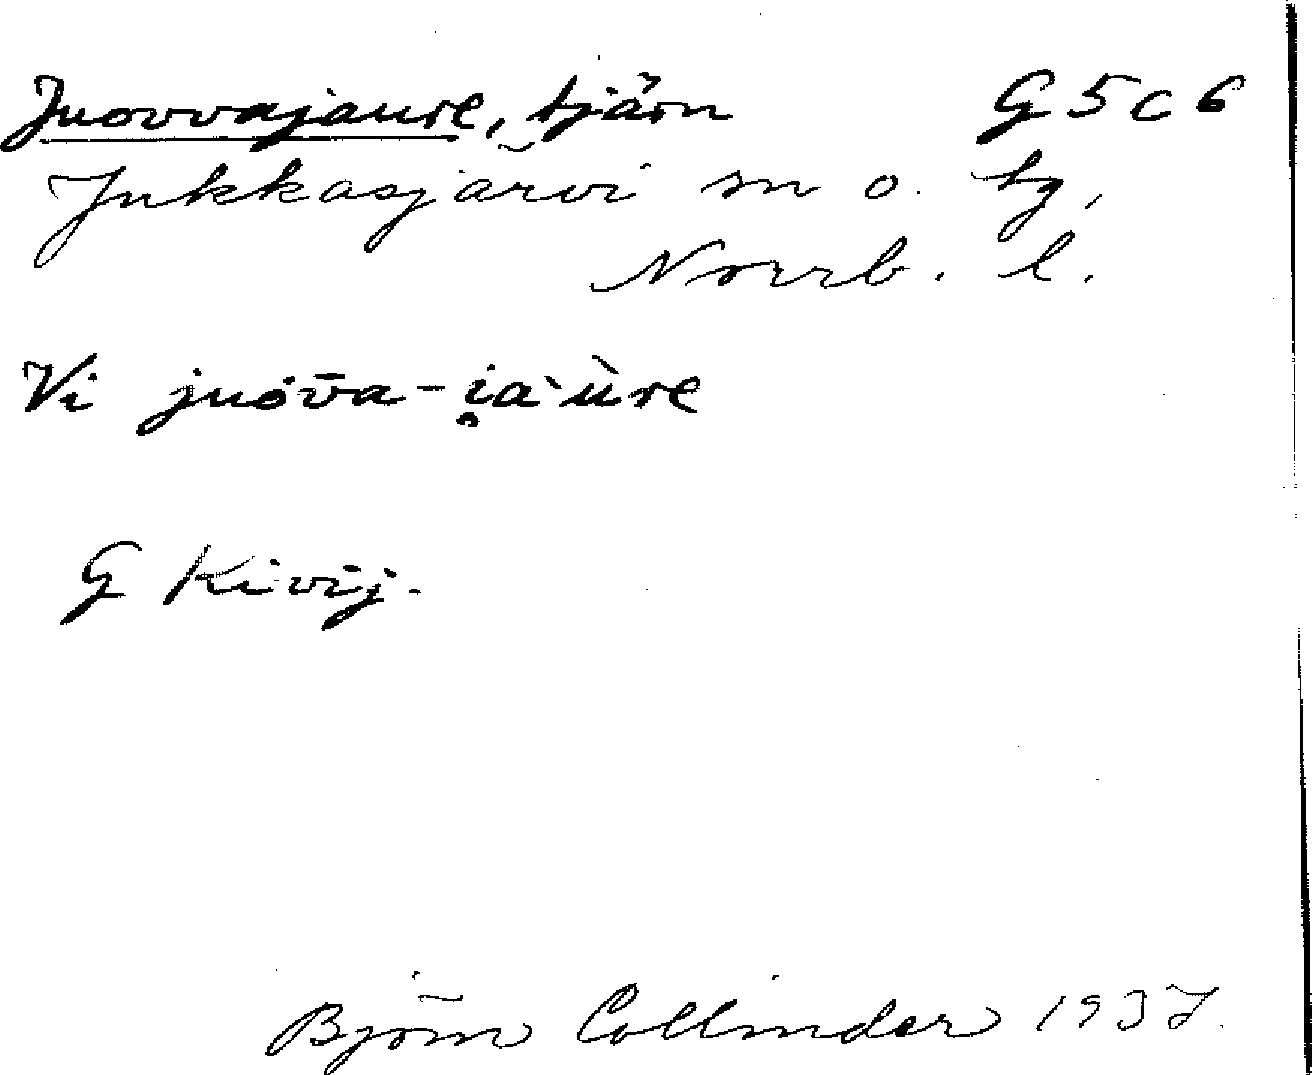 Juovvajaure, tjärn G 5 c 6
Jukkasjärvi sn o. tg,
Norrb. l.
Vi juȯv̄a-i̯a`ùre
G Kivij.
Björn Collinder 1937